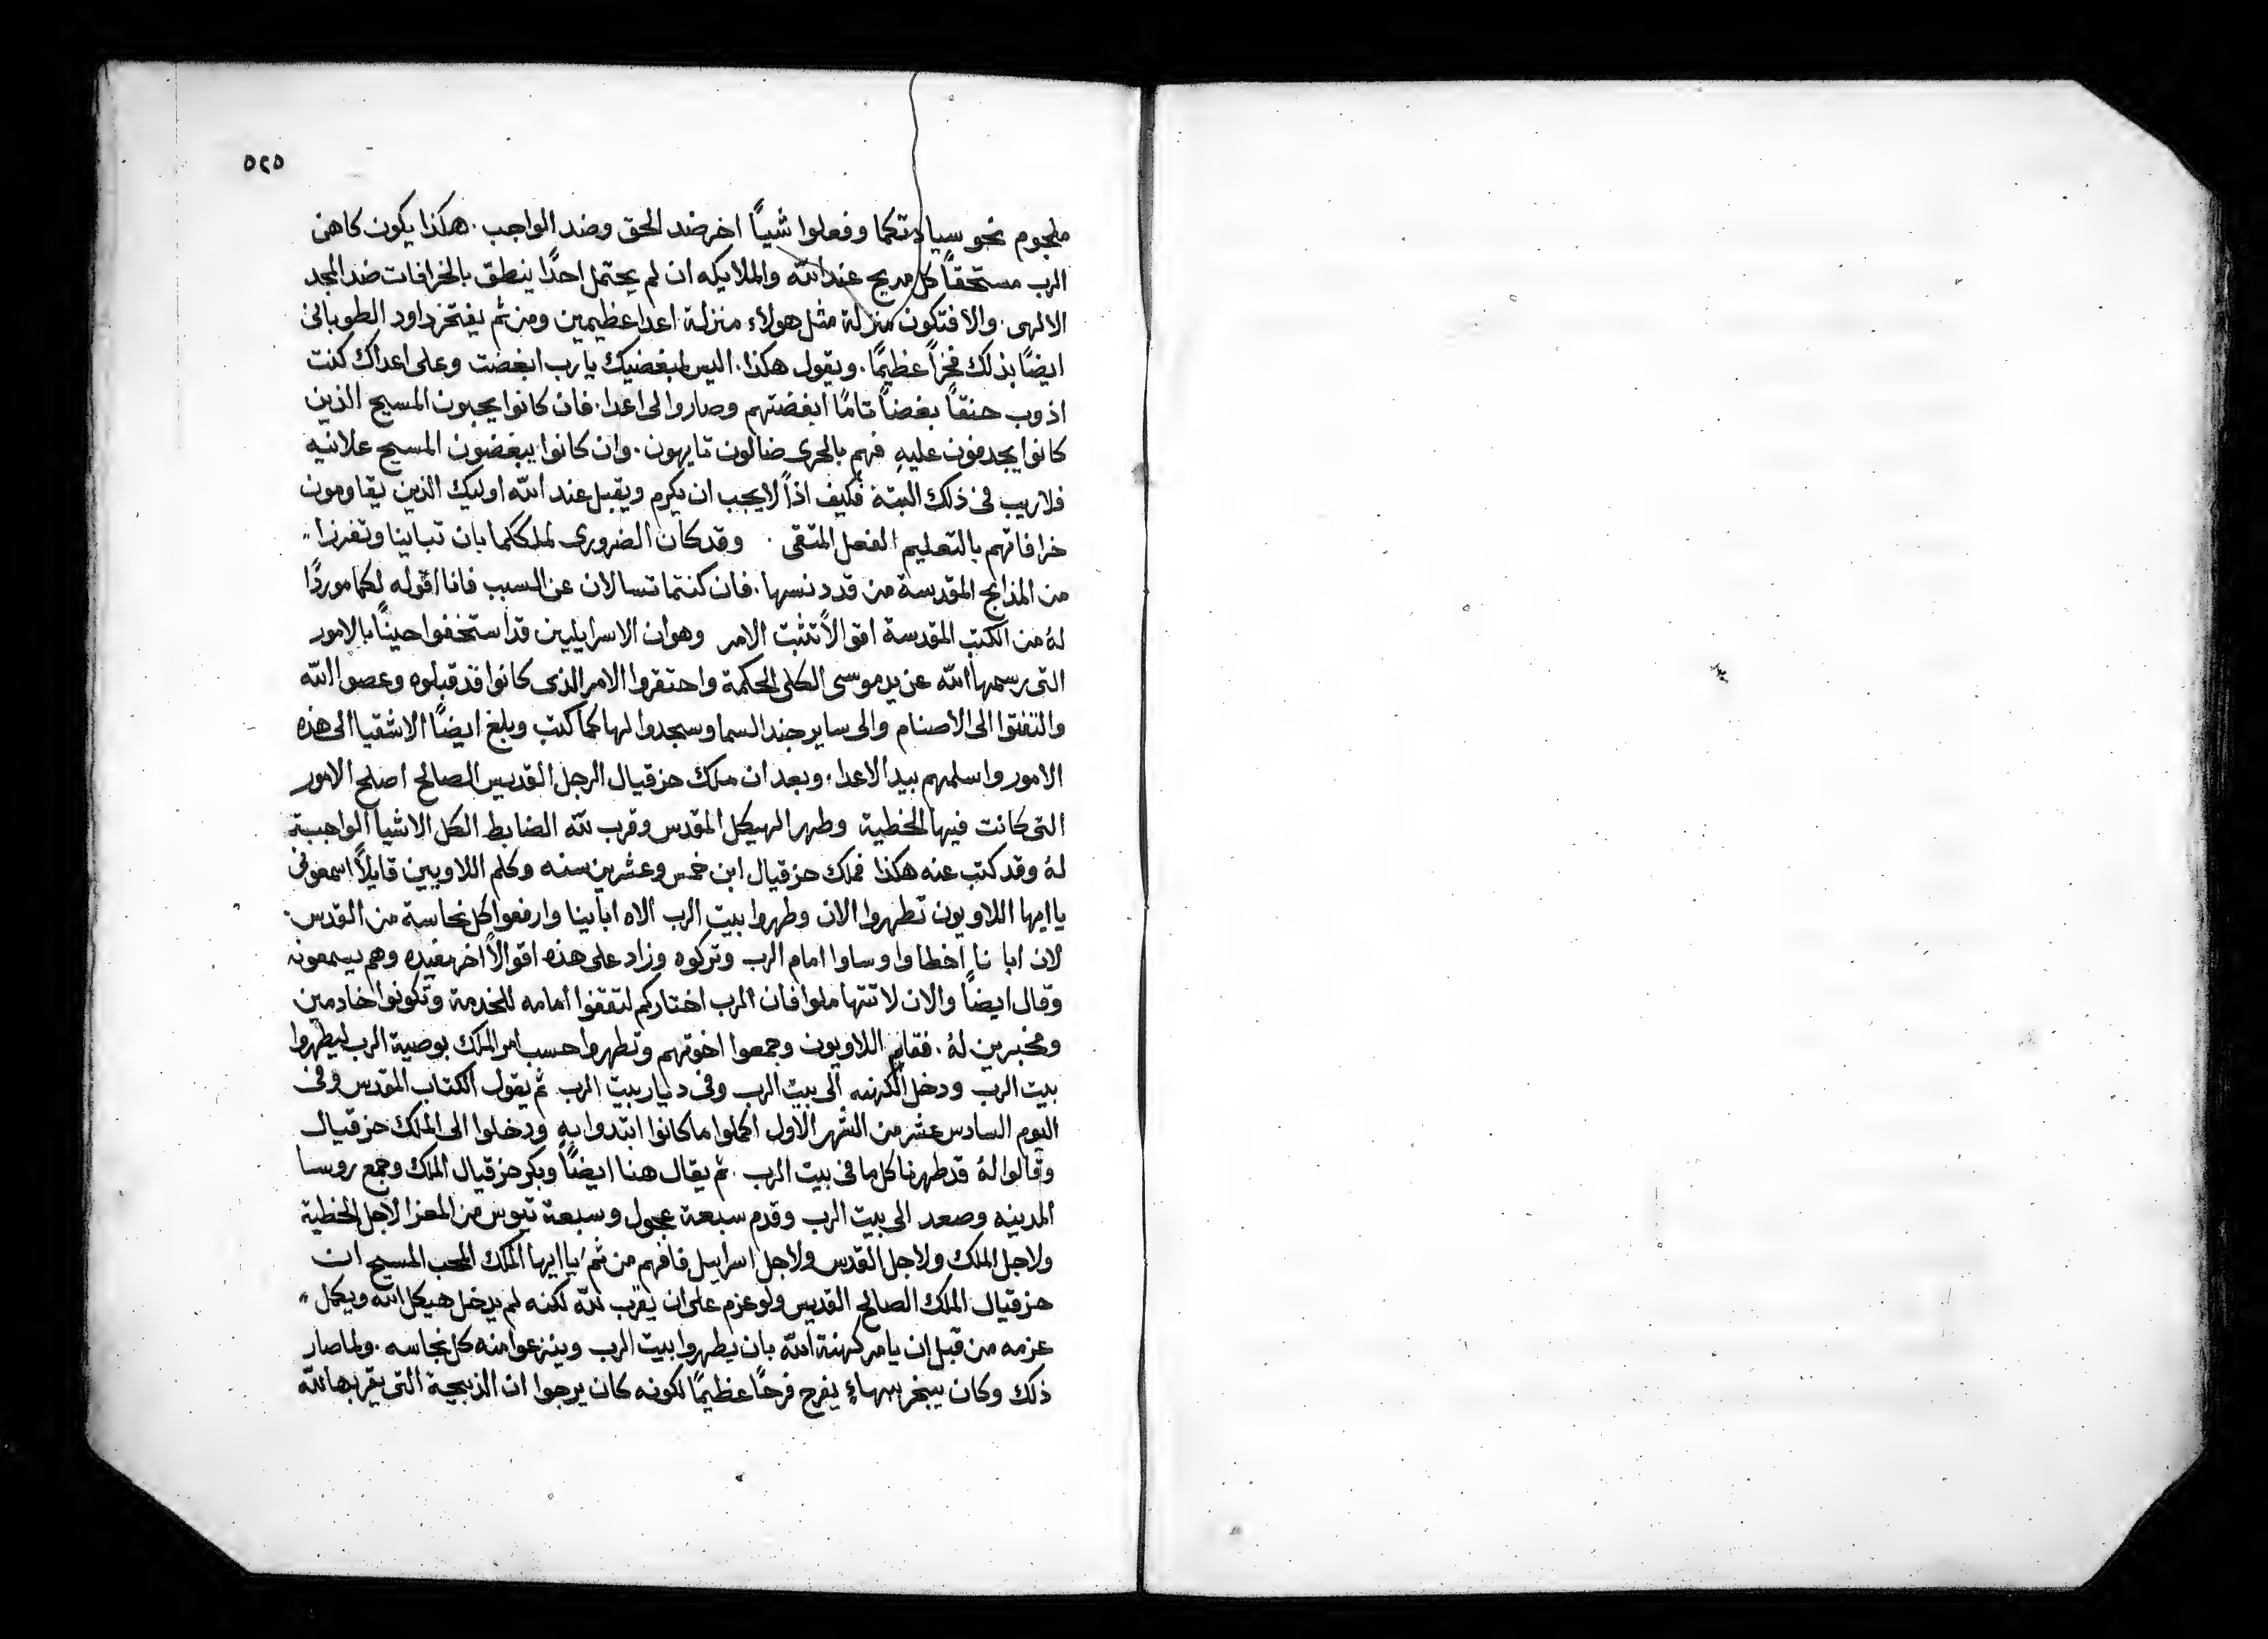 ٥٢٥
ملجوم نحو سيادتكما وفعلوا شيًا اخر ضد الحق وضد الواجب. هكذا يكون كاهن
الرب مستحقًا كل مديح عند الله والملايكه ان لم يحتمل احدًا ينطق بالخرافات ضد المجد
الالهى. والا فتكون منزلة مثل هولاء منزلة اعدا عظيمين ومن ثم يفتخر داود الطوبانى
ايضًا بذلك فخرًا عظيمًا. ويقول هكذا. اليس لمبغضيك يا رب ابغضت وعلى اعداك كنت
اذوب حنقًا بغضًا تامًا ابغضتهم وصاروا لى اعدا. فان كانوا يحبون المسيح الذين
كانوا يجدفون عليهِ فهم بالحرى ضالون تايهون. وان كانوا يبغضون المسيح علانيه
فلا ريب فى ذلك البتة فكيف اذًا لا يجب ان يكرم ويقبل عند الله اوليك الذين يقاومون
خرافاتهم بالتعليم الفعل المتقى . وقد كان الضرورى لملككما بان تباينا وتفرزا "
من المذابح المقدسة من قد دنسها. فان كنتما تسالان عن السبب فانا اقوله لكما موردًا
لهُ من الكتب المقدسة اقوالاً تثبت الامر وهو ان الاسرايليين قد استخفوا حينًا بالامور
التى رسمها الله عن يد موسى الكلى الحكمة واحتقروا الامر الذى كانوا قد قبلوه وعصوا الله
والتفتوا الى الاصنام والى ساير جند السما وسجدوا لها كما كتب وبلغ ايضًا الاشقيا الى هذه
الامور واسلمهم بيد الاعدا. وبعد ان ملك حزقيال الرجل القديس الصالح اصلح الامور
التى كانت فيها الخطية وطهر الهيكل المقدس وقرب لله الضابط الكل الاشيا الواجبة
لهُ وقد كتب عنه هكذا فملك حزقيال ابن خمس وعشرين سنه وكلم اللاويين قايلاً اسمعونى
يا ايها اللاويون تطهروا الان وطهروا بيت الرب الاه ابايننا وارفعوا كل نجاسة من القدس.
لان ابا نا اخطاوا وساوا امام الرب وتركوه وزاد على هذه اقوالاً اخر مفيده وهم يسمعونه
وقال ايضًا والان لا تتهاملوا فان الرب اختاركم لتقفوا امامه للخدمة وتكونوا خادمين
ومخبرين لهُ. فقام اللاويون وجمعوا اخوتهم وتطهروا حسب امر الملك بوصية الرب ليطهروا
بيت الرب ودخل الكهنه الى بيت الرب وفى ديار بيت الرب ثم يقول الكتاب المقدس وفى
اليوم السادس عشر من الشهر الاول اكملوا ما كانوا ابتدوا بهِ ودخلوا الى الملك حزقيال
وقالوا لهُ قد طهرنا كل ما فى بيت الرب. ثم يقال هنا ايضًا وبكر حزقيال الملك وجمع روسا
المدينه وصعد الى بيت الرب وقدم سبعة عجول وسبعة تيوس من المعزا لاجل الخطية
ولاجل الملك ولاجل القدس ولاجل اسراييل فافهم من ثم يا ايها الملك المحب المسيح ان
حزقيال الملك الصالح القديس ولو عزم على ان يقرب لله لكنه لم يدخل هيكل الله ويكمل "
عزمه من قبل ان يامر كهنة الله بان يطهروا بيت الرب وينزعوا منه كل نجاسه. ولما صار
ذلك وكان يبخر ببهاءٍ يفرح فرحًا عظيمًا لكونه كان يرجوا ان الذبيحة التى يقربها لله